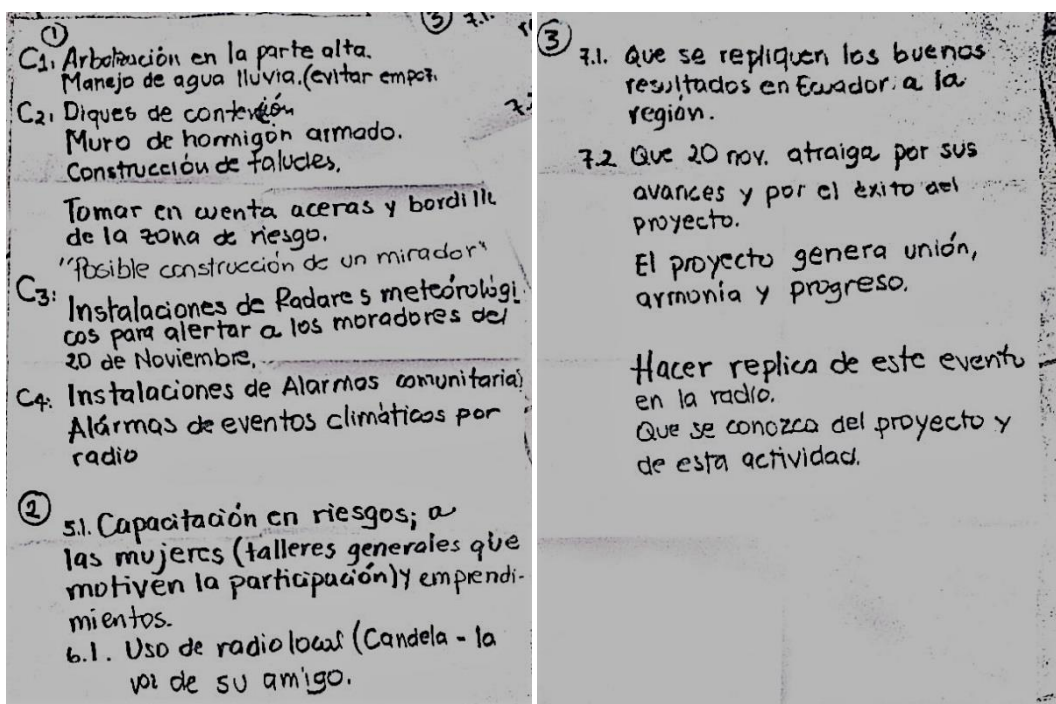 ①
C1: Arborización en la parte alta.
Manejo de agua lluvia. (evitar empoz.
C2: Diques de contención
Muro de hormigón armado.
Construcción de taludes.
Tomar en cuenta aceras y bordill
de la zona de riesgo.
"Posible construcción de un mirador"
C3: Instalaciones de Radares meteórológi
cos para alertar a los moradores del
20 de Noviembre.
C4: Instalaciones de Alarmas comunitarias
Alármas de eventos climáticos por
radio
②
5.1. Capacitación en riesgos; a
las mujeres (talleres generales que
motiven la participación) y emprendi-
mientos.
6.1. Uso de radio local (Candela - la
voz de su amigo.
③ 7.1.
③
7.1. Que se repliquen los buenos
resultados en Ecuador a la
región.
7.2 Que 20 nov. atraiga por sus
avances y por el éxito del
proyecto.
El proyecto genera unión,
armonía y progreso.
Hacer replica de este evento
en la radio.
Que se conozca del proyecto y
de esta actividad.